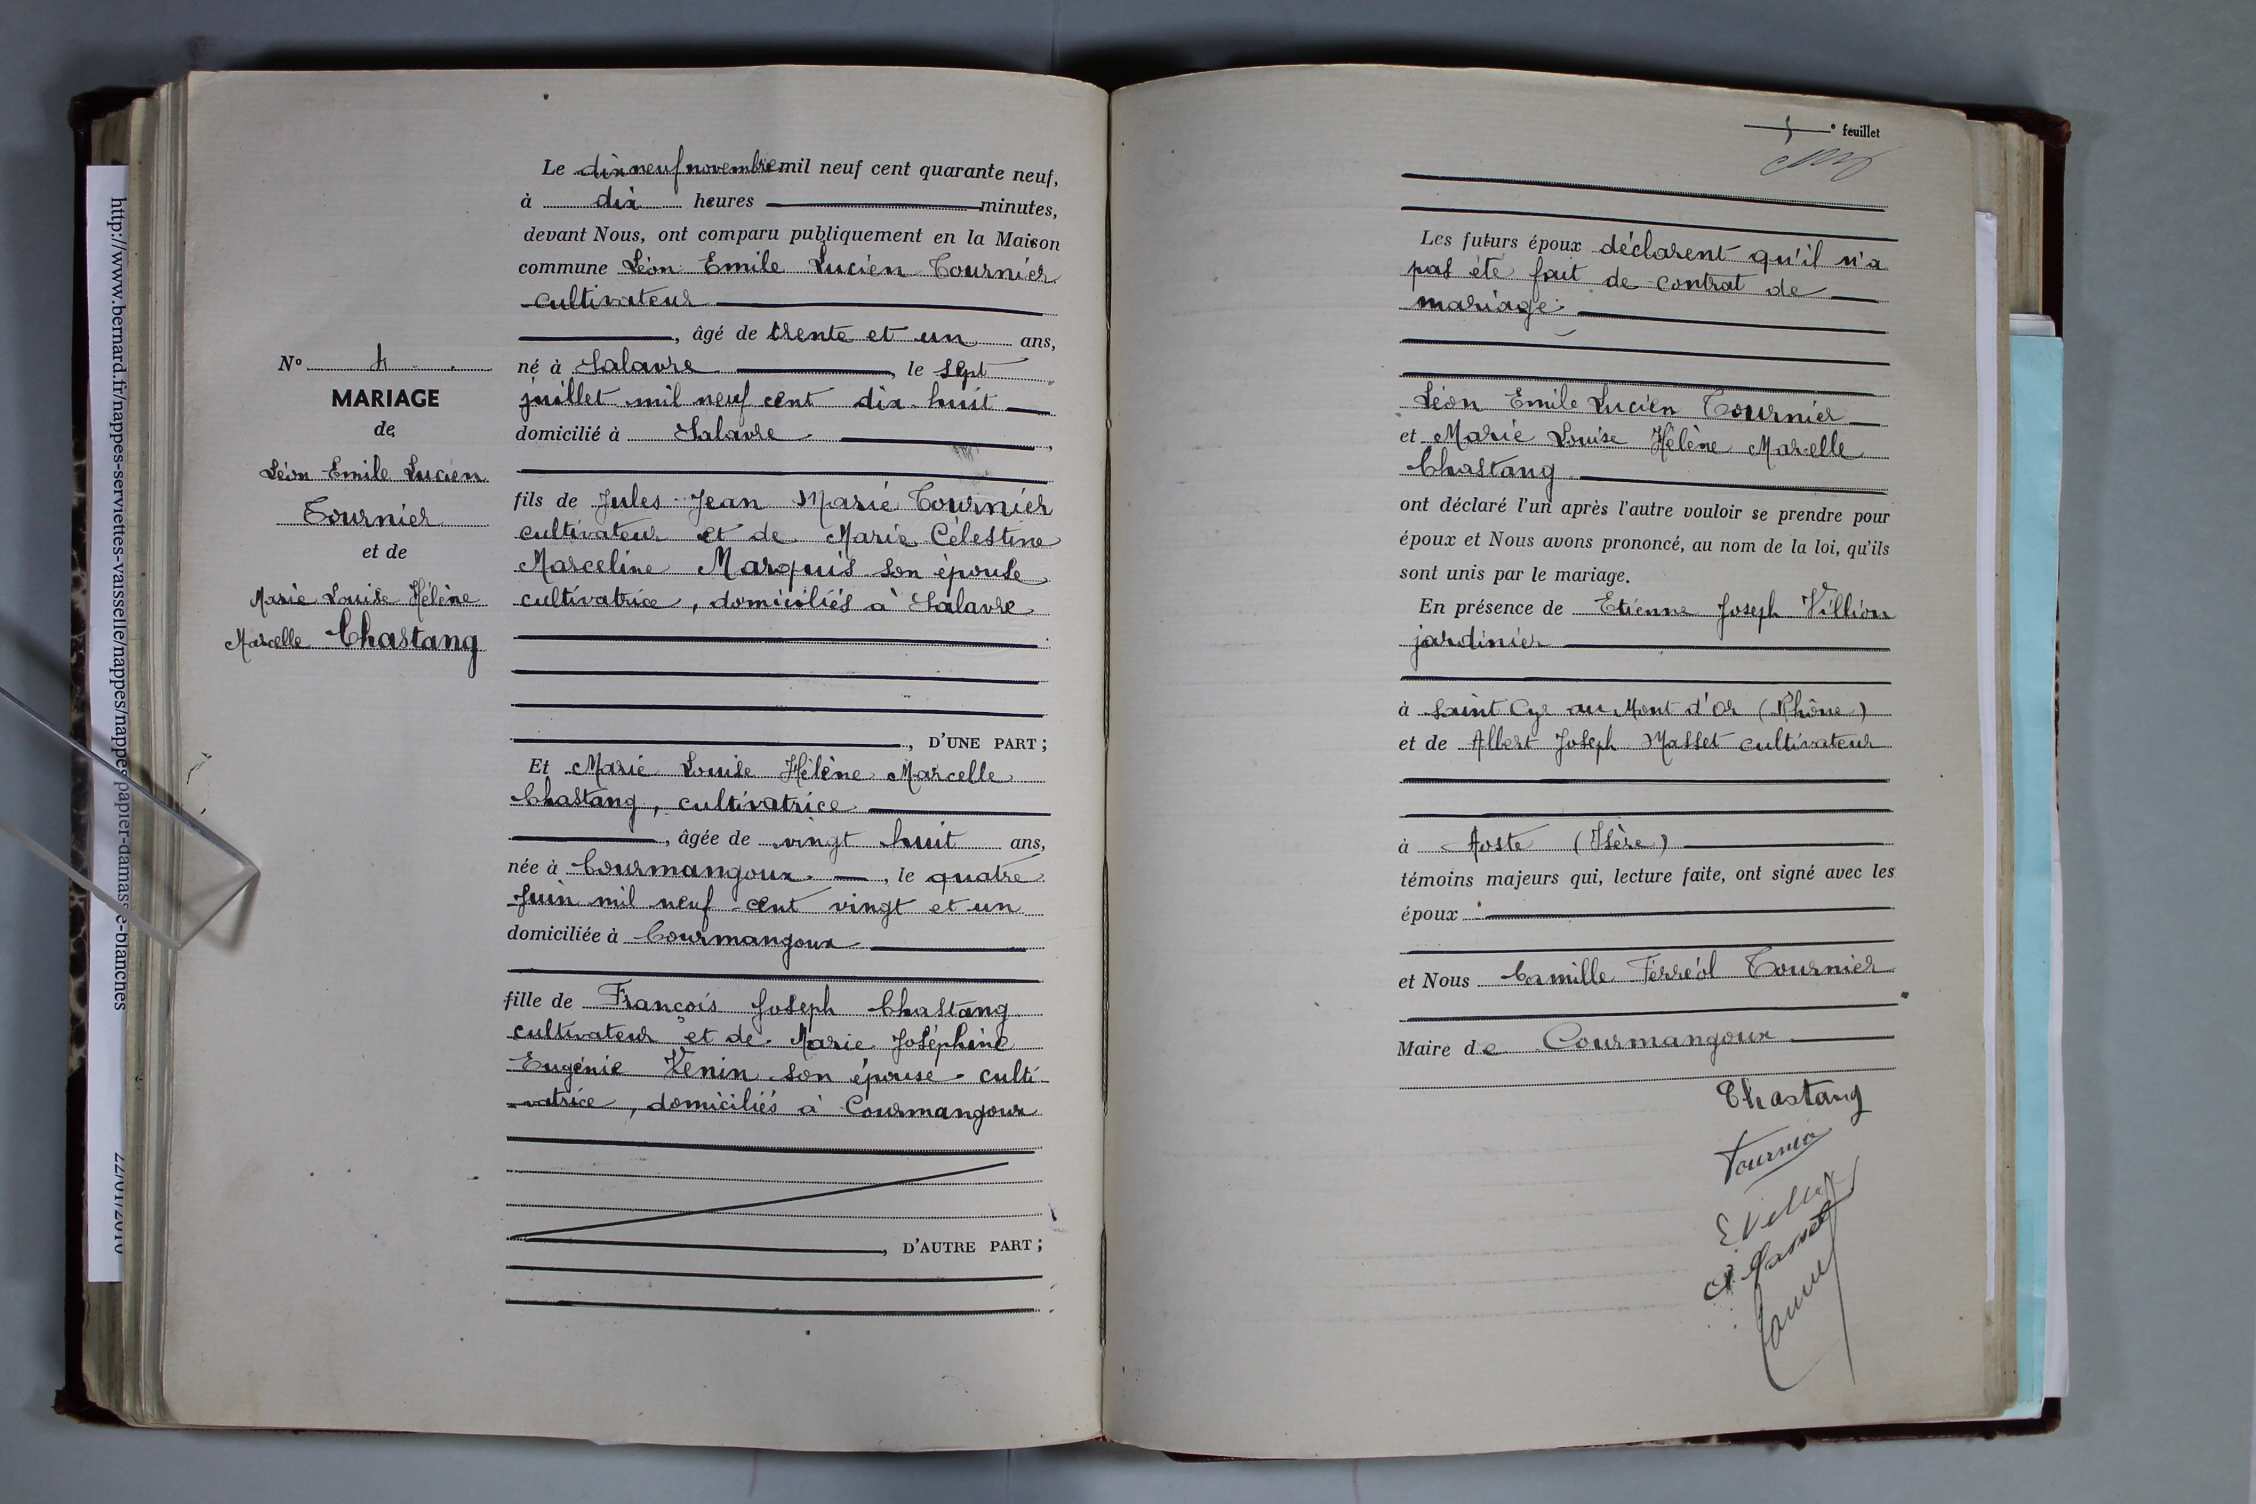 http://www.bernard.fr/nappes-serviettes-vaisselle/nappes/nappes-papier-damasse-blanches
N° 4
MARIAGE
de
Léon Emile Lucien
Tournier
et de
Marie Louise Hélène
Marcelle Chastang
Le dix neuf novembre mil neuf cent quarante neuf,
à dix heures minutes,
devant Nous, ont comparu publiquement en la Maison
commune Léon Emile Lucien Tournier
cultivateur
, âgé de trente et un ans,
né à Salavre, le sept
juillet mil neuf cent dix huit
domicilié à Salavre,
fils de Jules Jean Marie Tournier
cultivateur et de Marie Célestine
Marceline Marquis son épouse
cultivatrice, domiciliés à Salavre
, D'UNE PART ;
Et Marie Louise Hélène Marcelle
Chastang, cultivatrice
, âgée de vingt huit ans,
née à Courmangoux, le quatre
Juin mil neuf cent vingt et un
domiciliée à Courmangoux
fille de François Joseph Chastang
cultivateur et de Marie Joséphine
Eugénie Venin son épouse culti-
vatrice, domiciliés à Courmangoux
, D'AUTRE PART ;
° feuillet
Les futurs époux déclarent qu'il n'a
pas été fait de contrat de
mariage.
Léon Emile Lucien Tournier
et Marie Louise Hélène Marcelle
Chastang
ont déclaré l'un après l'autre vouloir se prendre pour
époux et Nous avons prononcé, au nom de la loi, qu'ils
sont unis par le mariage.
En présence de Etienne Joseph Villion
jardinier
à Saint Cyr au Mont d'Or (Rhône)
et de Albert Joseph Masset cultivateur
à Aoste (Isère)
témoins majeurs qui, lecture faite, ont signé avec les
époux
et Nous Camille Ferréol Tournier
Maire de Courmangoux
Chastang
Tournier